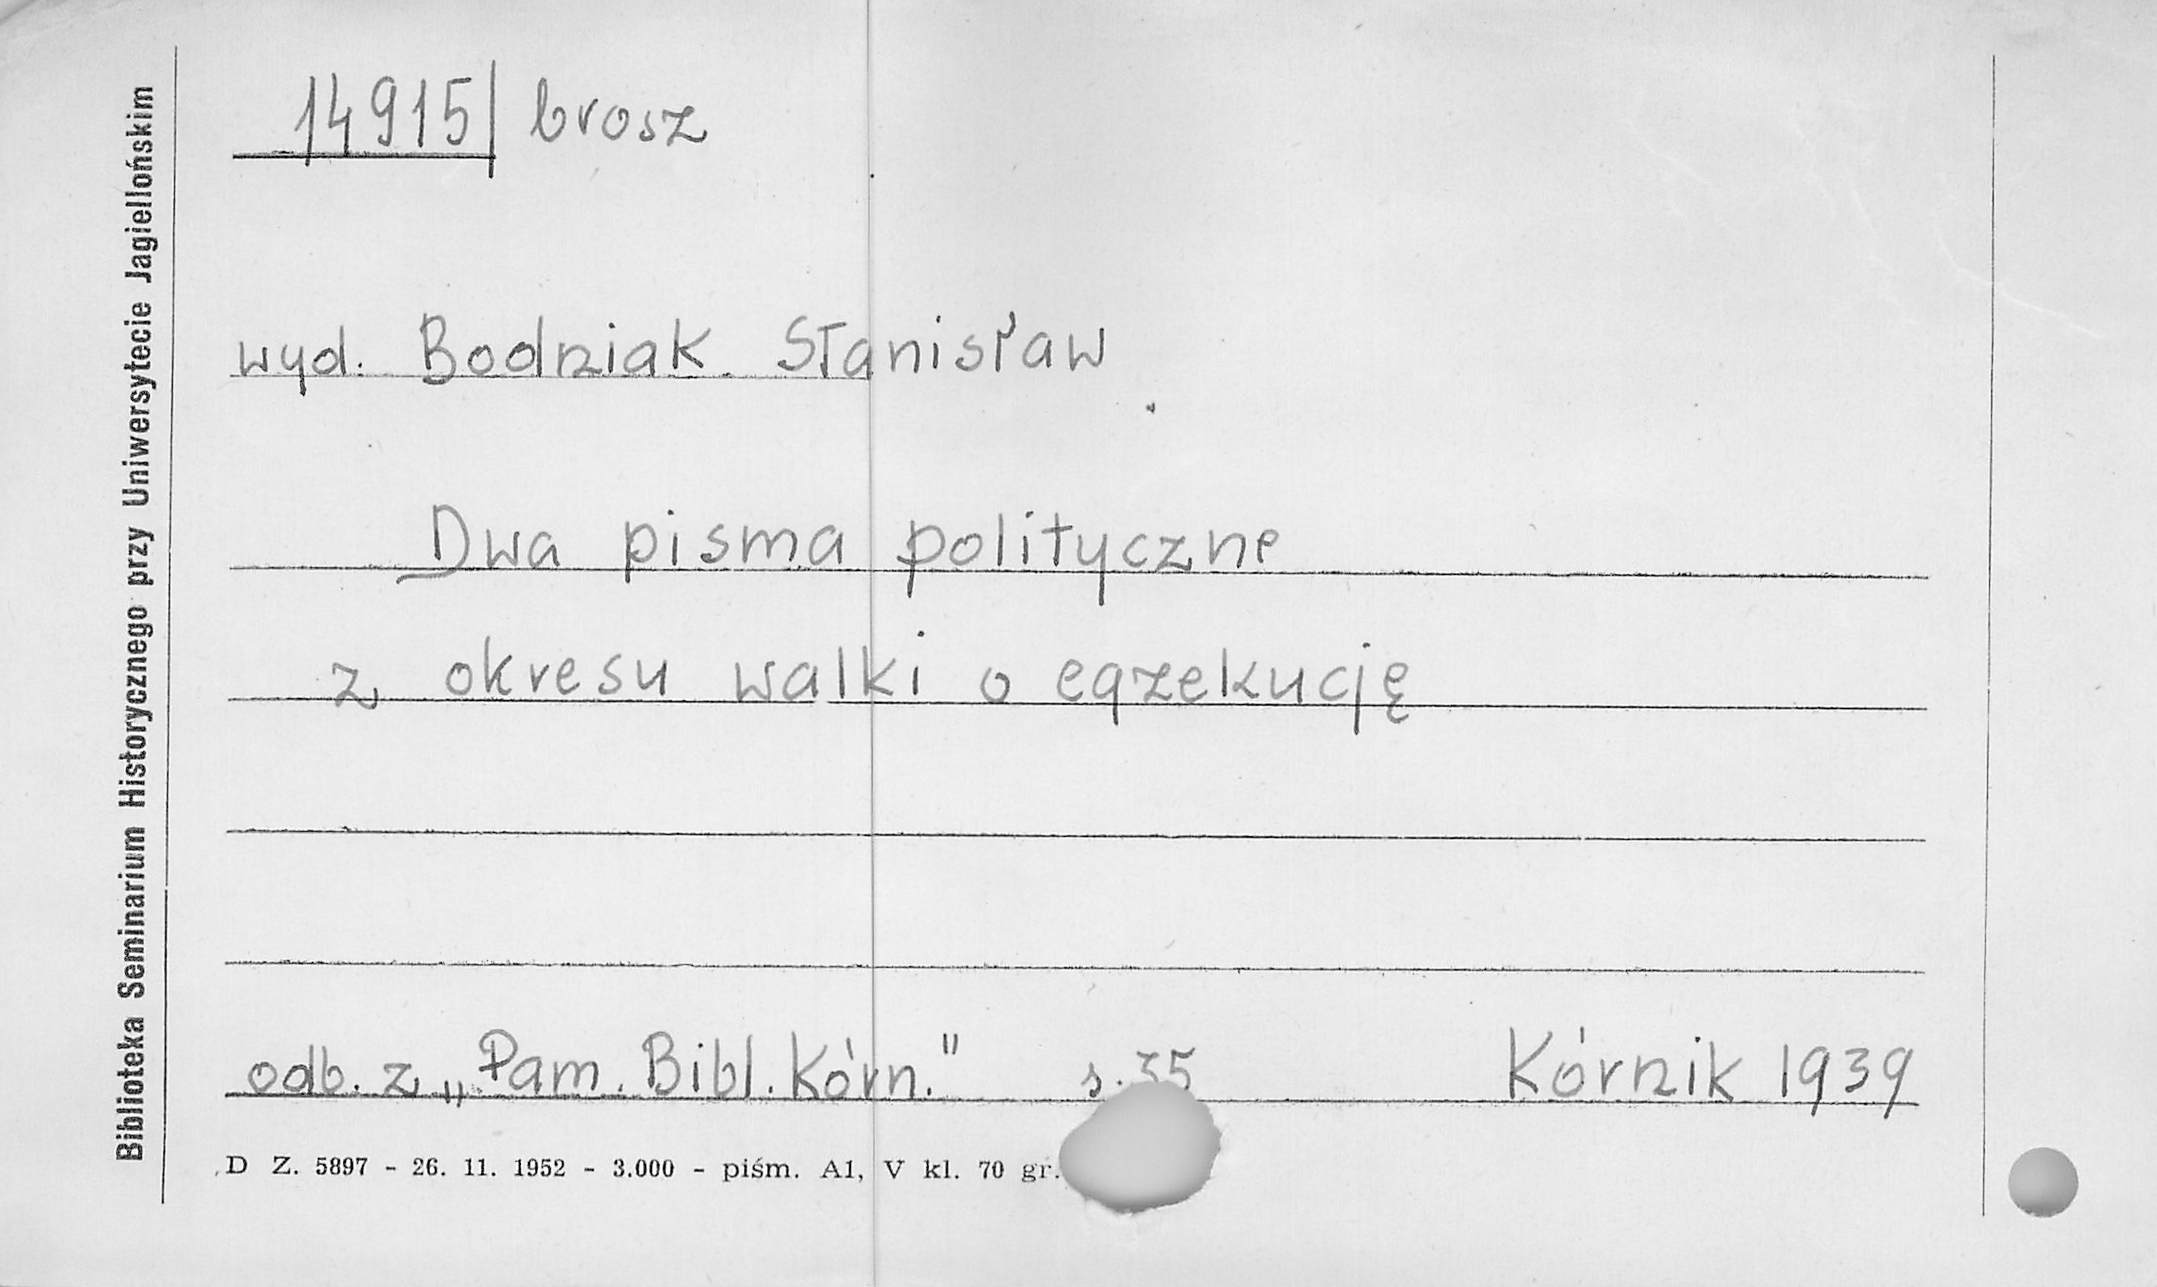 14915 | brosz
wyd. Bodniak Stanisław
Dwa pisma polityczne
z okresu walki o egzekucję
odb. z „Pam. Bibl. Kórn." s. 35 Kórnik 1939
D Z. 5897 - 26. 11. 1952 - 3.000 - piśm. A1, V kl. 70 gr.
Biblioteka Seminarium Historycznego przy Uniwersytecie Jagiellońskim